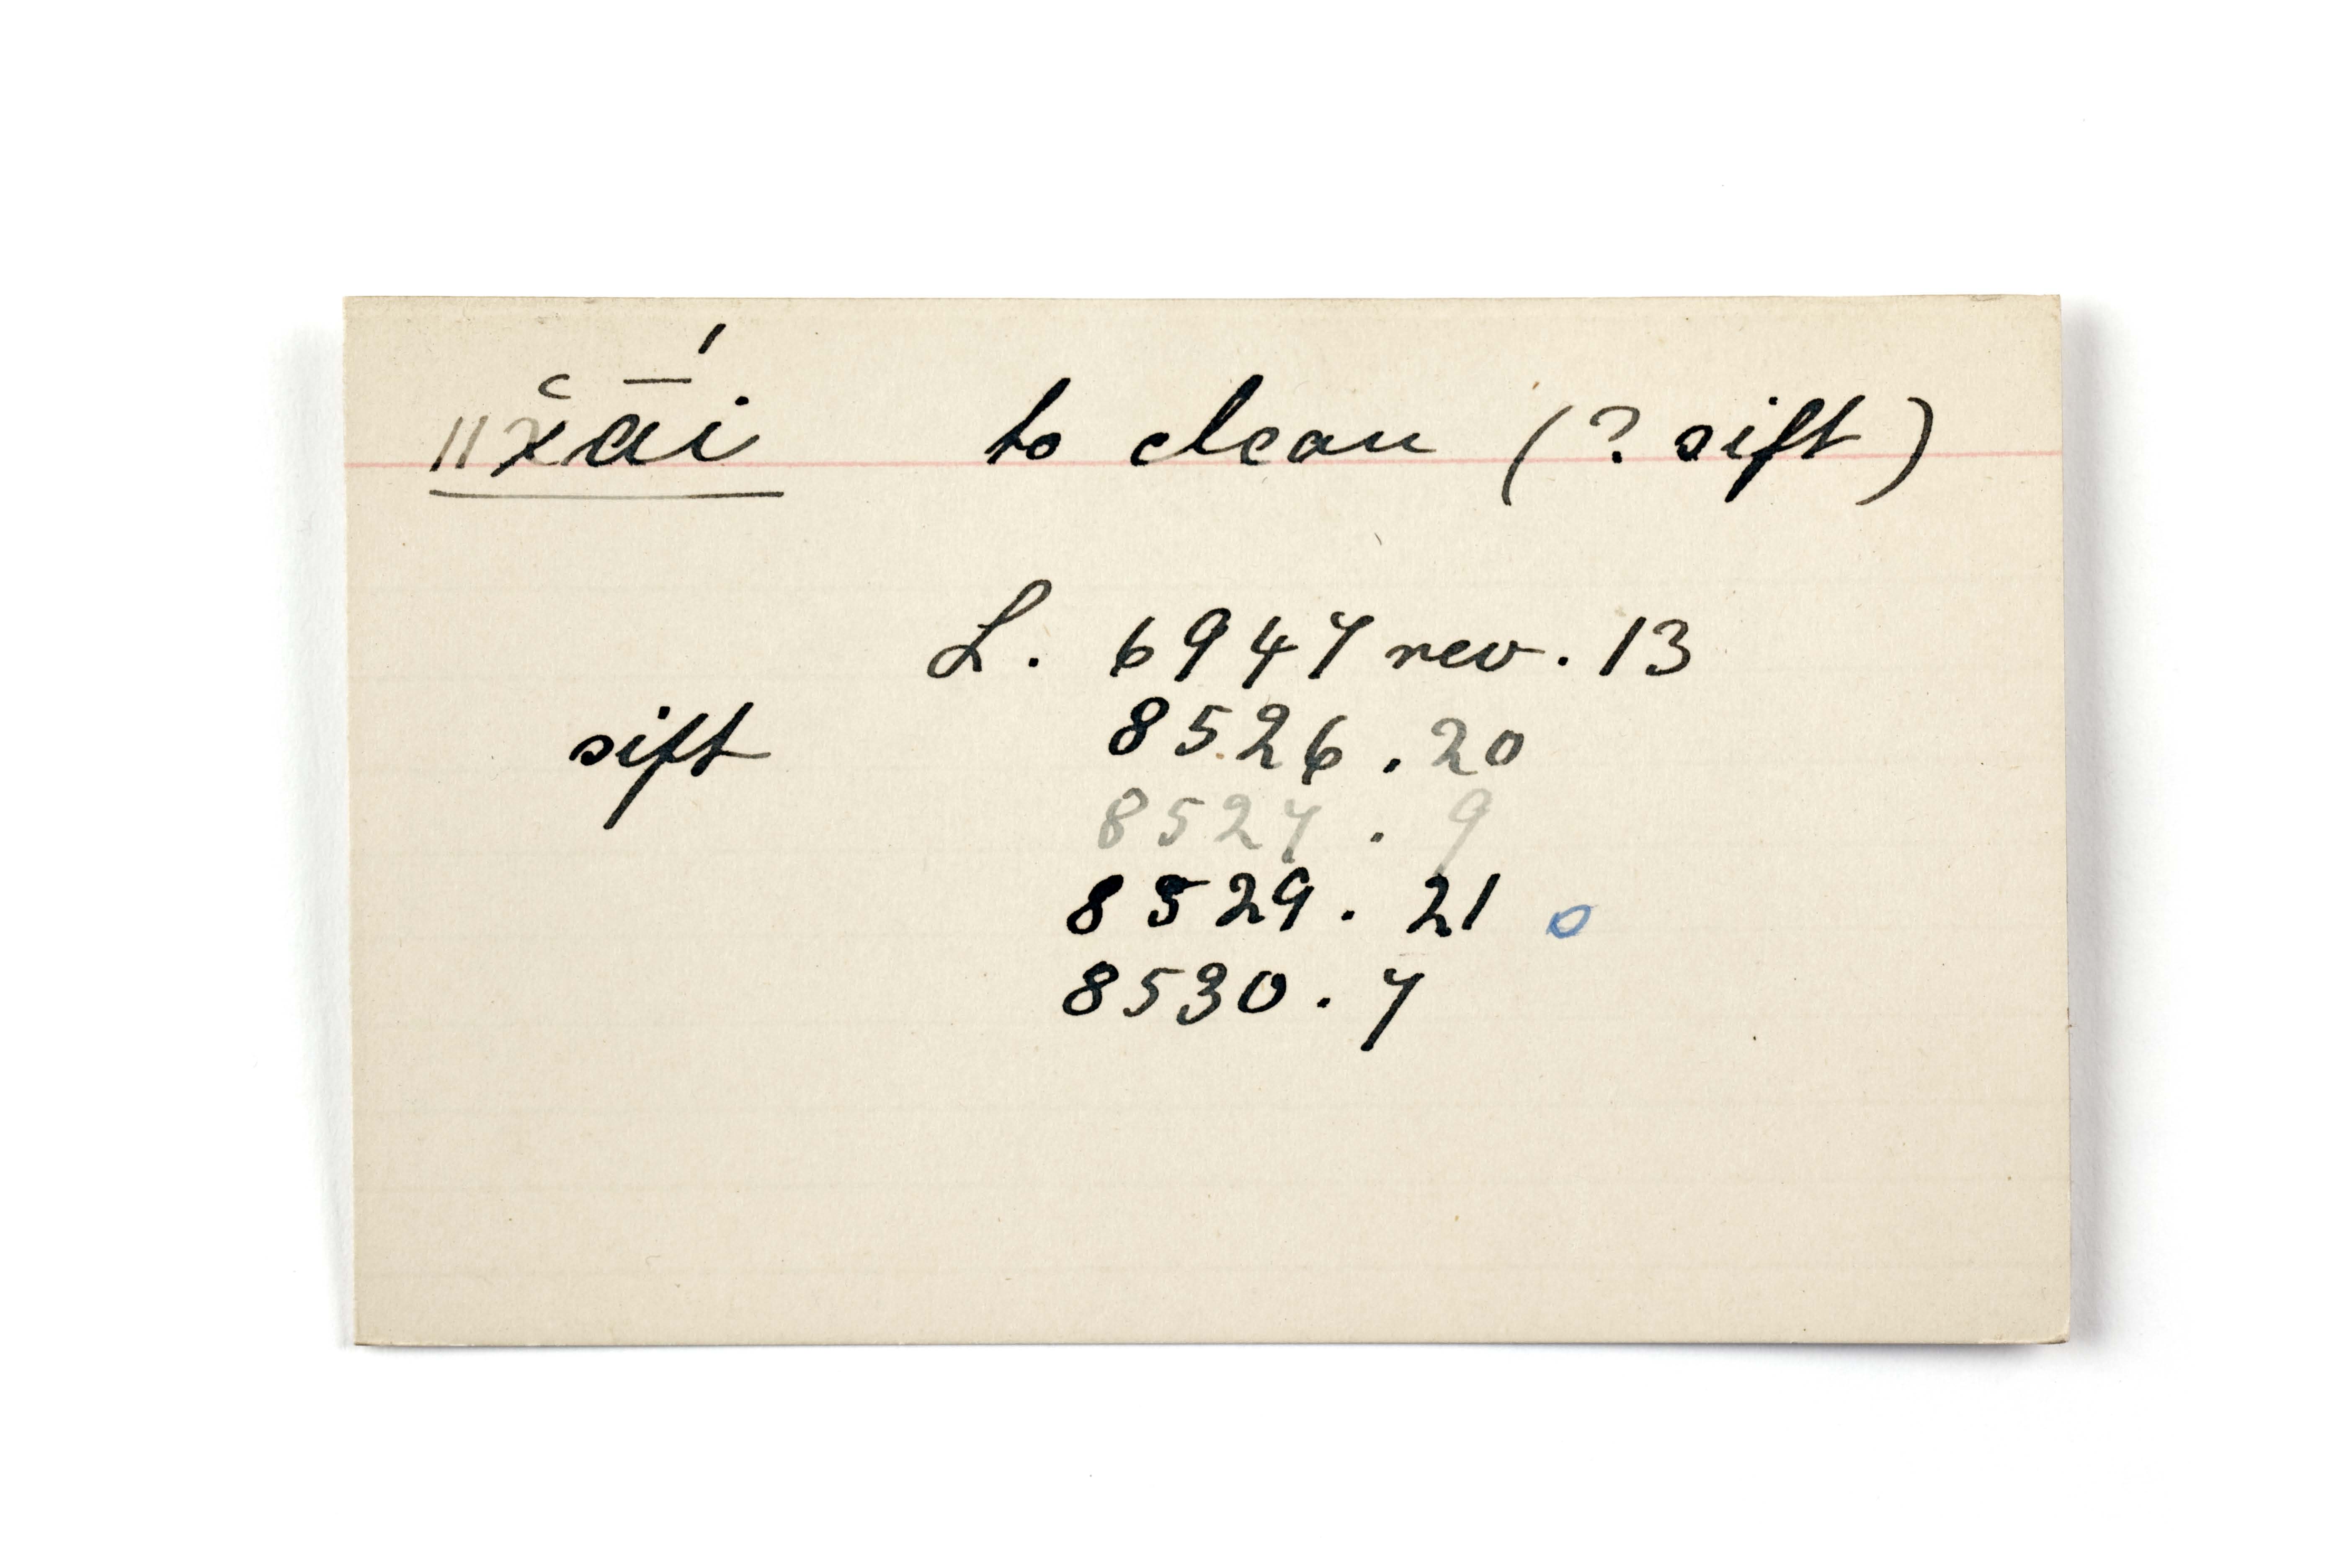 ǁx̆ā́i to clean (? sift)
L. 6947 rev. 13
sift 8526 . 20
8527 . 9
8529 . 21 o
8530 . 7